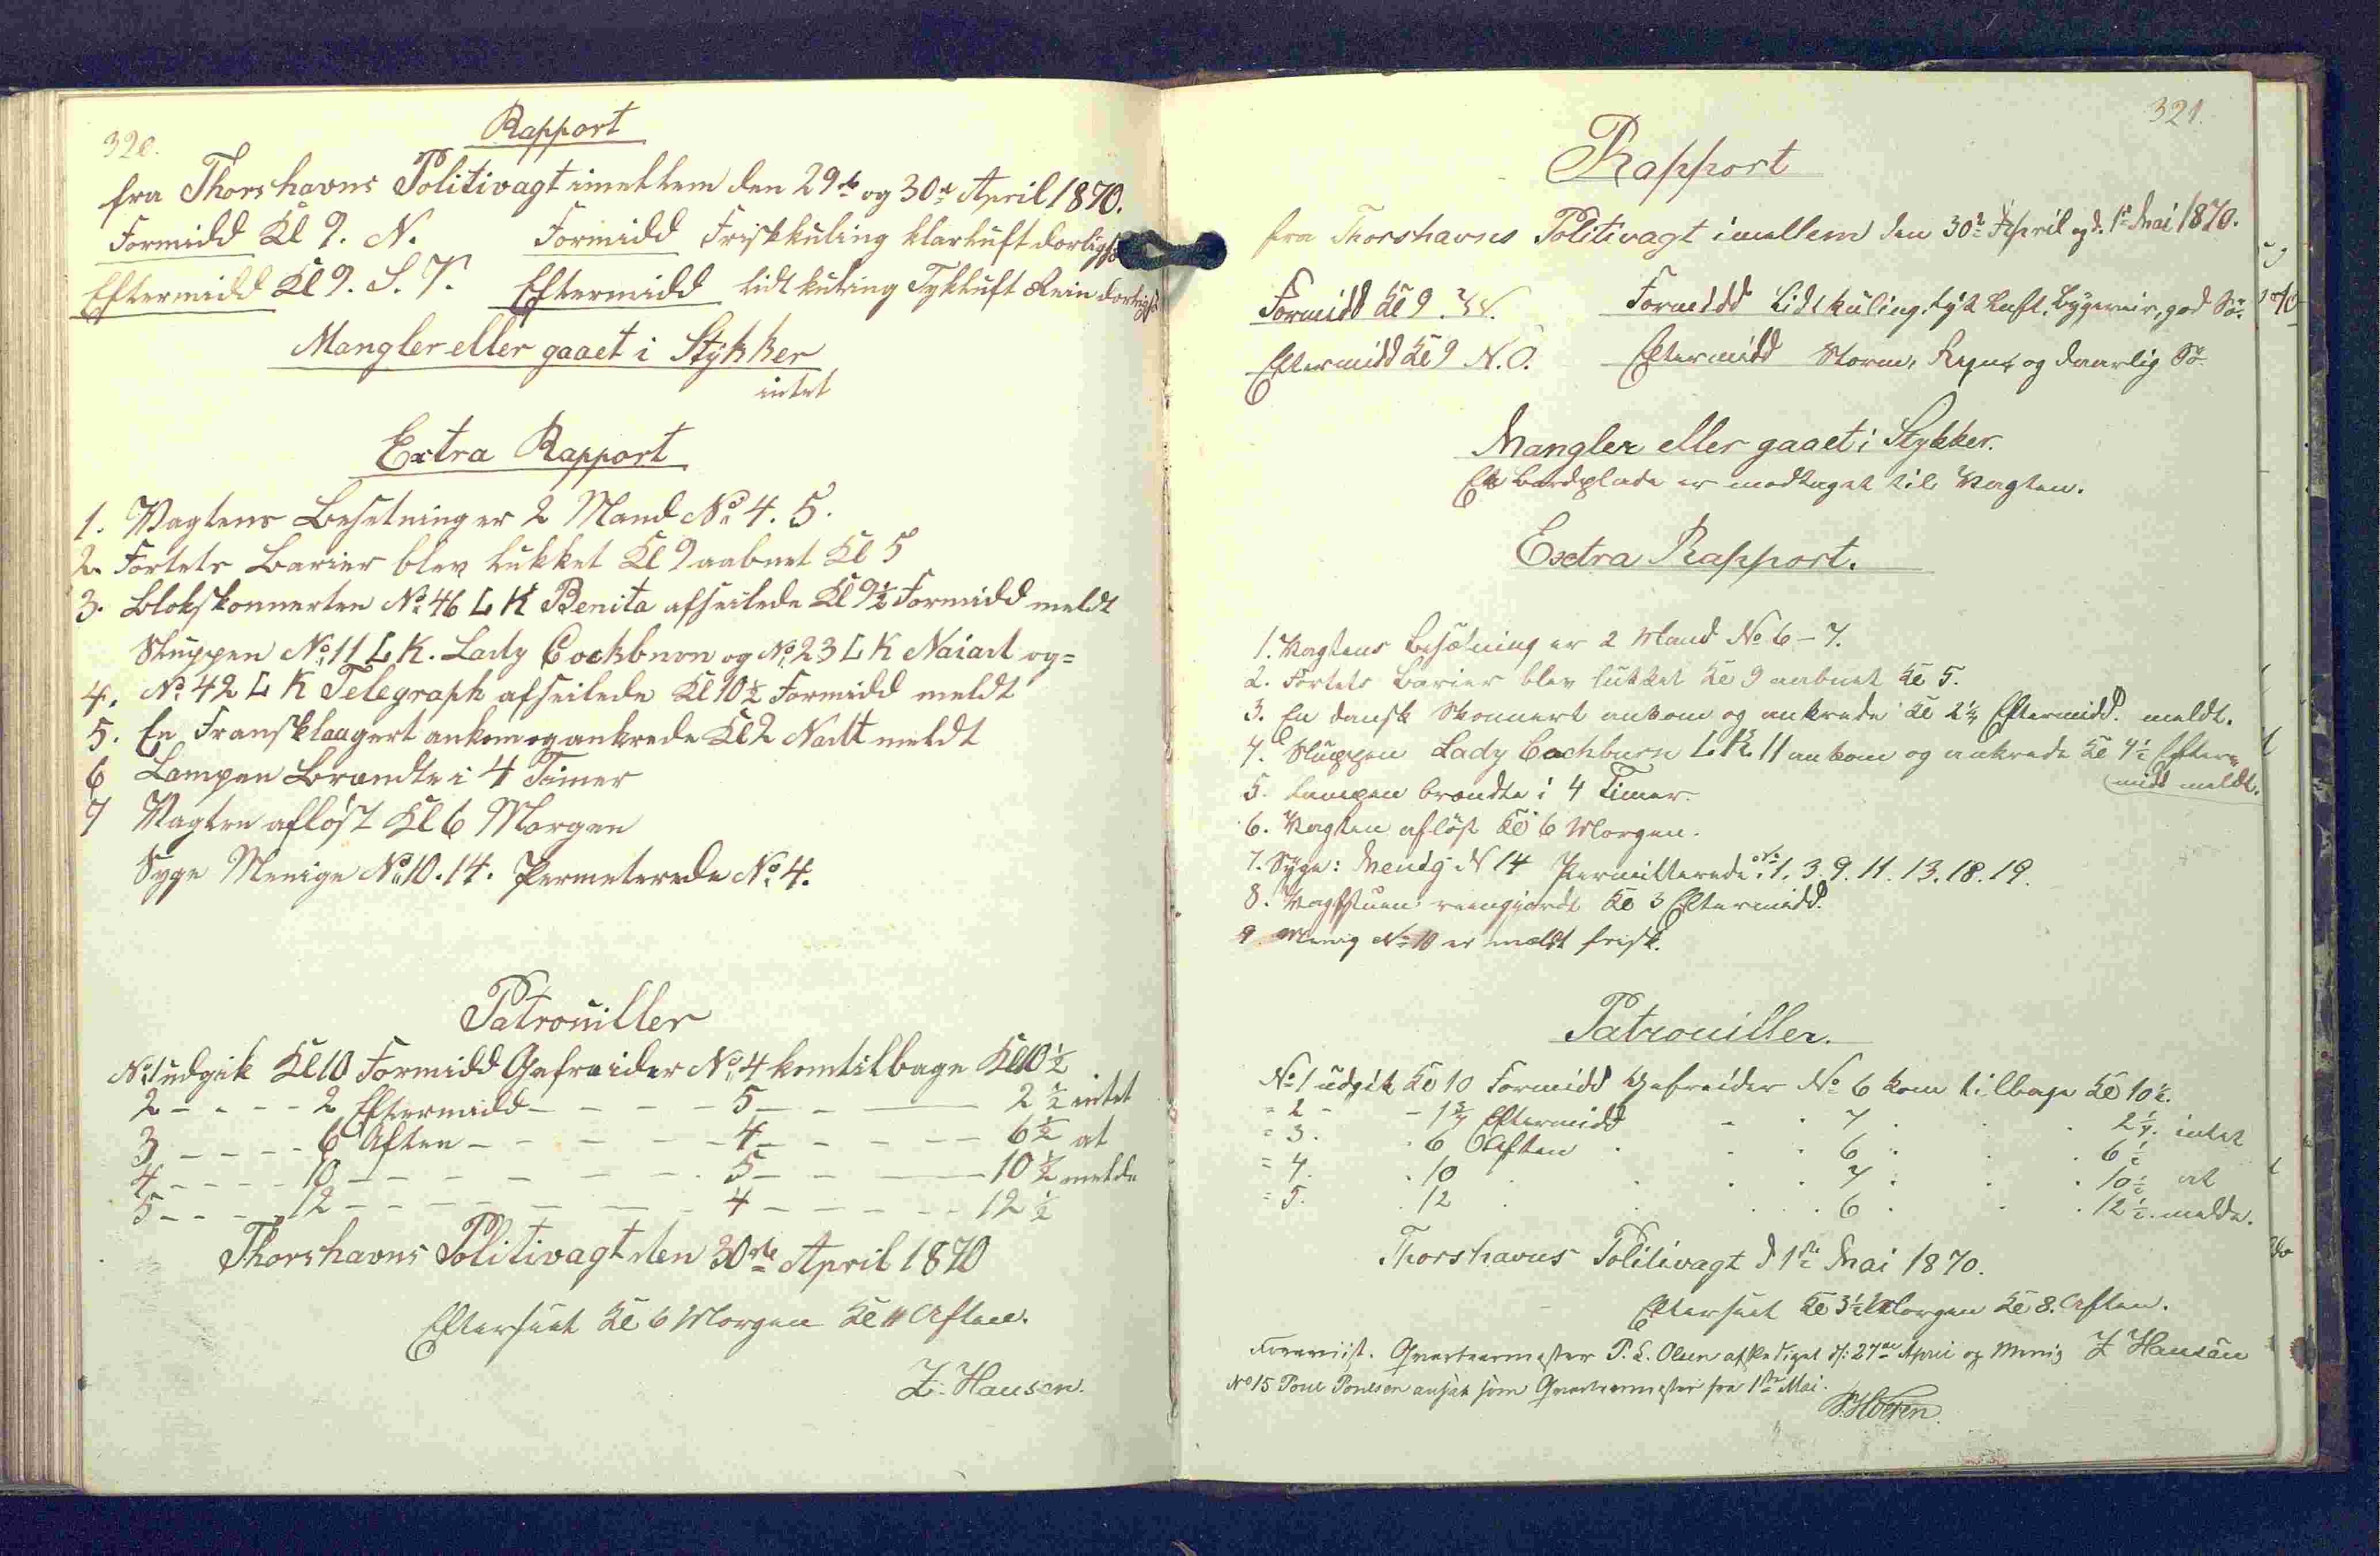 320.
Rapport
fra Thorshavns Politivagt imellem den 29de og 30te April 1870.
Formidd Kl 9. N. Formidd Friskkuling klarluft
Eftermidd Kl 9. S. V. Eftermidd lidt kuling Tykluft
Mangler eller gaaet i Stykker
intet
Extra Rapport
1. Vagtens Besetning er 2 Mand No 4. 5.
2. Fortets Barier blev lukket Kl 9 aabnet Kl 5
3. Blokskonnerten No 46 L K Benita afseilede Kl 9½ Formidd meldt
Sluppen No 11 L K. Lady Cockbnon og No 23 L K Naiad og=
4. No 42 L K Telegraph afseilede Kl 10½ Formidd meldt
5. En Fransklaugert ankom og ankrede Kl 2 Natt meldt
6 Lampen Brændte i 4 Timer
7 Vagten afløst Kl 6 Morgen
Syge Menige No 10. 14. Permeterede No 4.
Patrouiller
No 1 udgik Kl 10 Formidd Gefreider No 4 kom tilbage Kl 10½
2 - - - - 2 Eftermidd - - - - 5 - - - 2½ intet
3 - - - - 6 Aften - - - - 4 - - - - 6½ at
4 - - - - 10 - - - - - - 5 - - - 10½ melde
5 - - - - 12 - - - - - - 4 - - - - 12½
Thorshavns Politivagt den 30te April 1870
Efterseet Kl 6 Morgen Kl 11 Aften.
Z. Hansen.
321.
Rapport
fra Thorshavns Politivagt imellem den 30te April og d. 1ste Mai 1870.
Formidd Kl 9. Formidd Lidt kuling, tyk Luft, Bygeveir, god Sö.
Eftermidd Kl 9 N. O. Eftermidd Storm, Regn og daarlig Sö
Mangler eller gaaet i Stykker.
En Bordplade er modtaget til Vagten.
Extra Rapport.
1. Vagtens Besætning er 2 Mand No 6 - 7.
2. Fortets Barier blev lukket Kl 9 aabnet Kl 5.
3. En dansk Skonnert ankom og ankrede Kl 2¼ Eftermidd. meldt.
4. Sluppen Lady Cockburn LK 11 ankom og ankrede Kl 4½ Efter=
midd meldt.
5. Lampen brændte i 4 Timer.
6. Vagten aflöst Kl 6 Morgen.
7. Syge: Menig N 14 Permitterede: No 1. 3. 9. 11. 13. 18. 19.
8. Vagtstuen reengjordt Kl 3 Eftermidd.
9. Menig No 10 er meldt frisk.
Patrouiller.
No 1 udgik Kl 10 Formidd Gefreider No 6 kom tilbage Kl 10½.
= 2 - - 1¾ Eftermidd - . 7 . . 2¼. intet
= 3. . 6 Aften . . 6 . . 6½
= 4. . 10 . . 7 . . 10½ at
= 5. . 12 . . 6 . . 12½. melde.
Thorshavns Politivagt d 1ste Mai 1870.
Efterseet Kl 3½ Morgen Kl 8. Aften.
Z Hansen
Qvarteermester P. L. Olsen afskediget d: 27de April og Menig
No 15 Poul Poulsen ansat som Qvarteermester fra 1ste Mai.